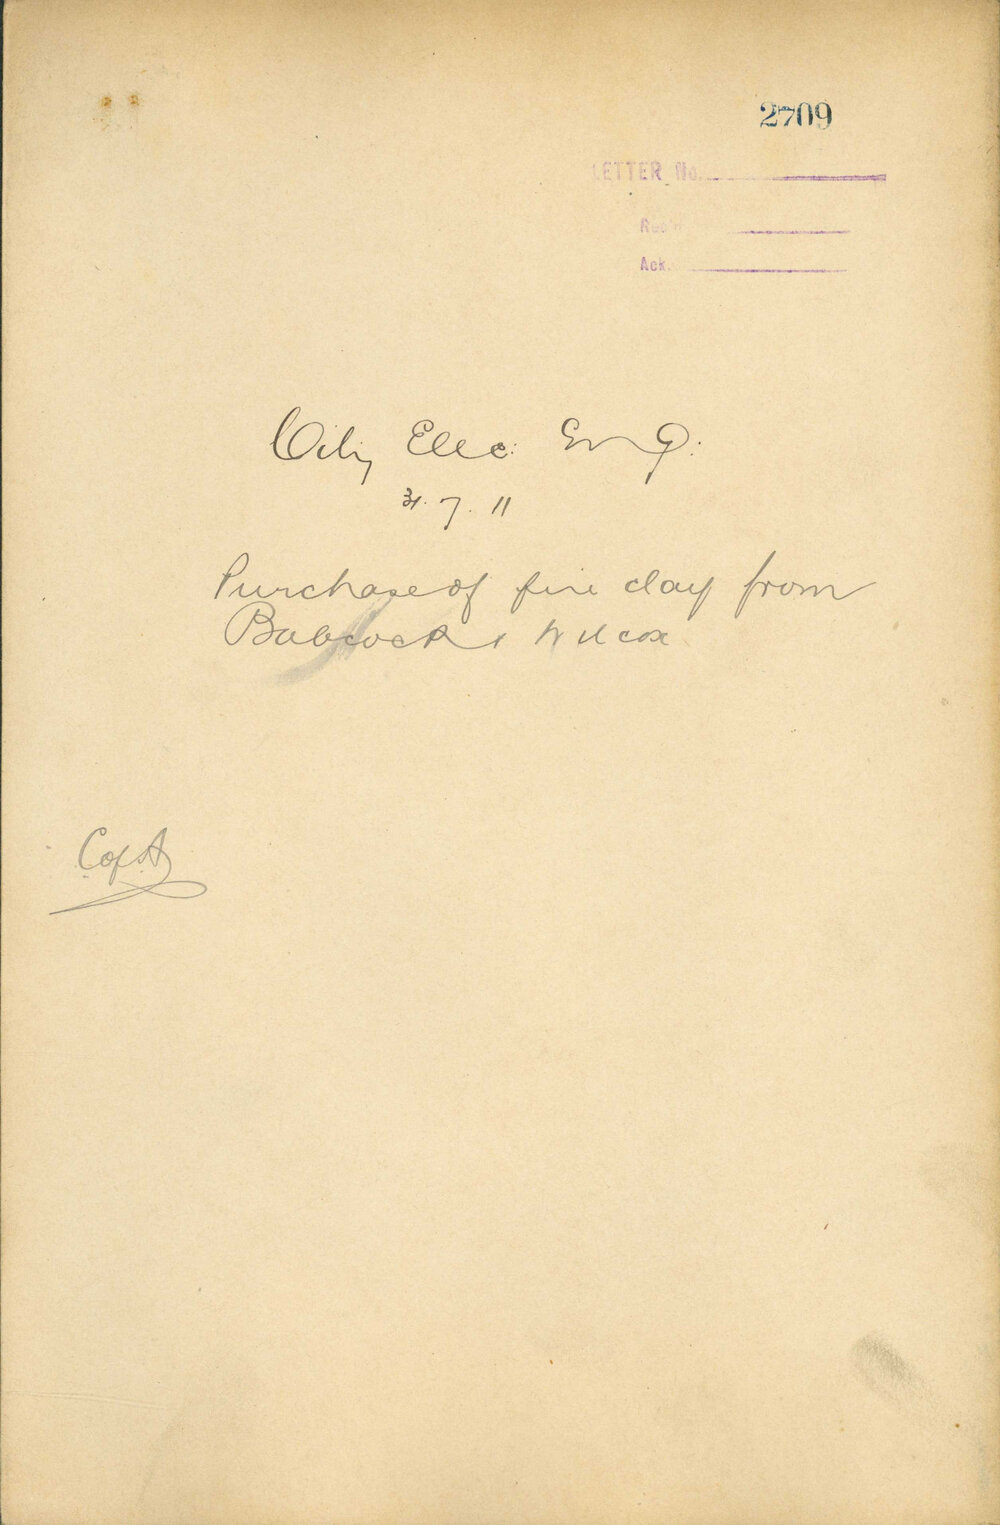 2709
LETTER No.
Rec'd
Ack.
City Elec: Eng:
31. 7. 11
Purchase of fire clay from
Babcock & Wilcox
C of A